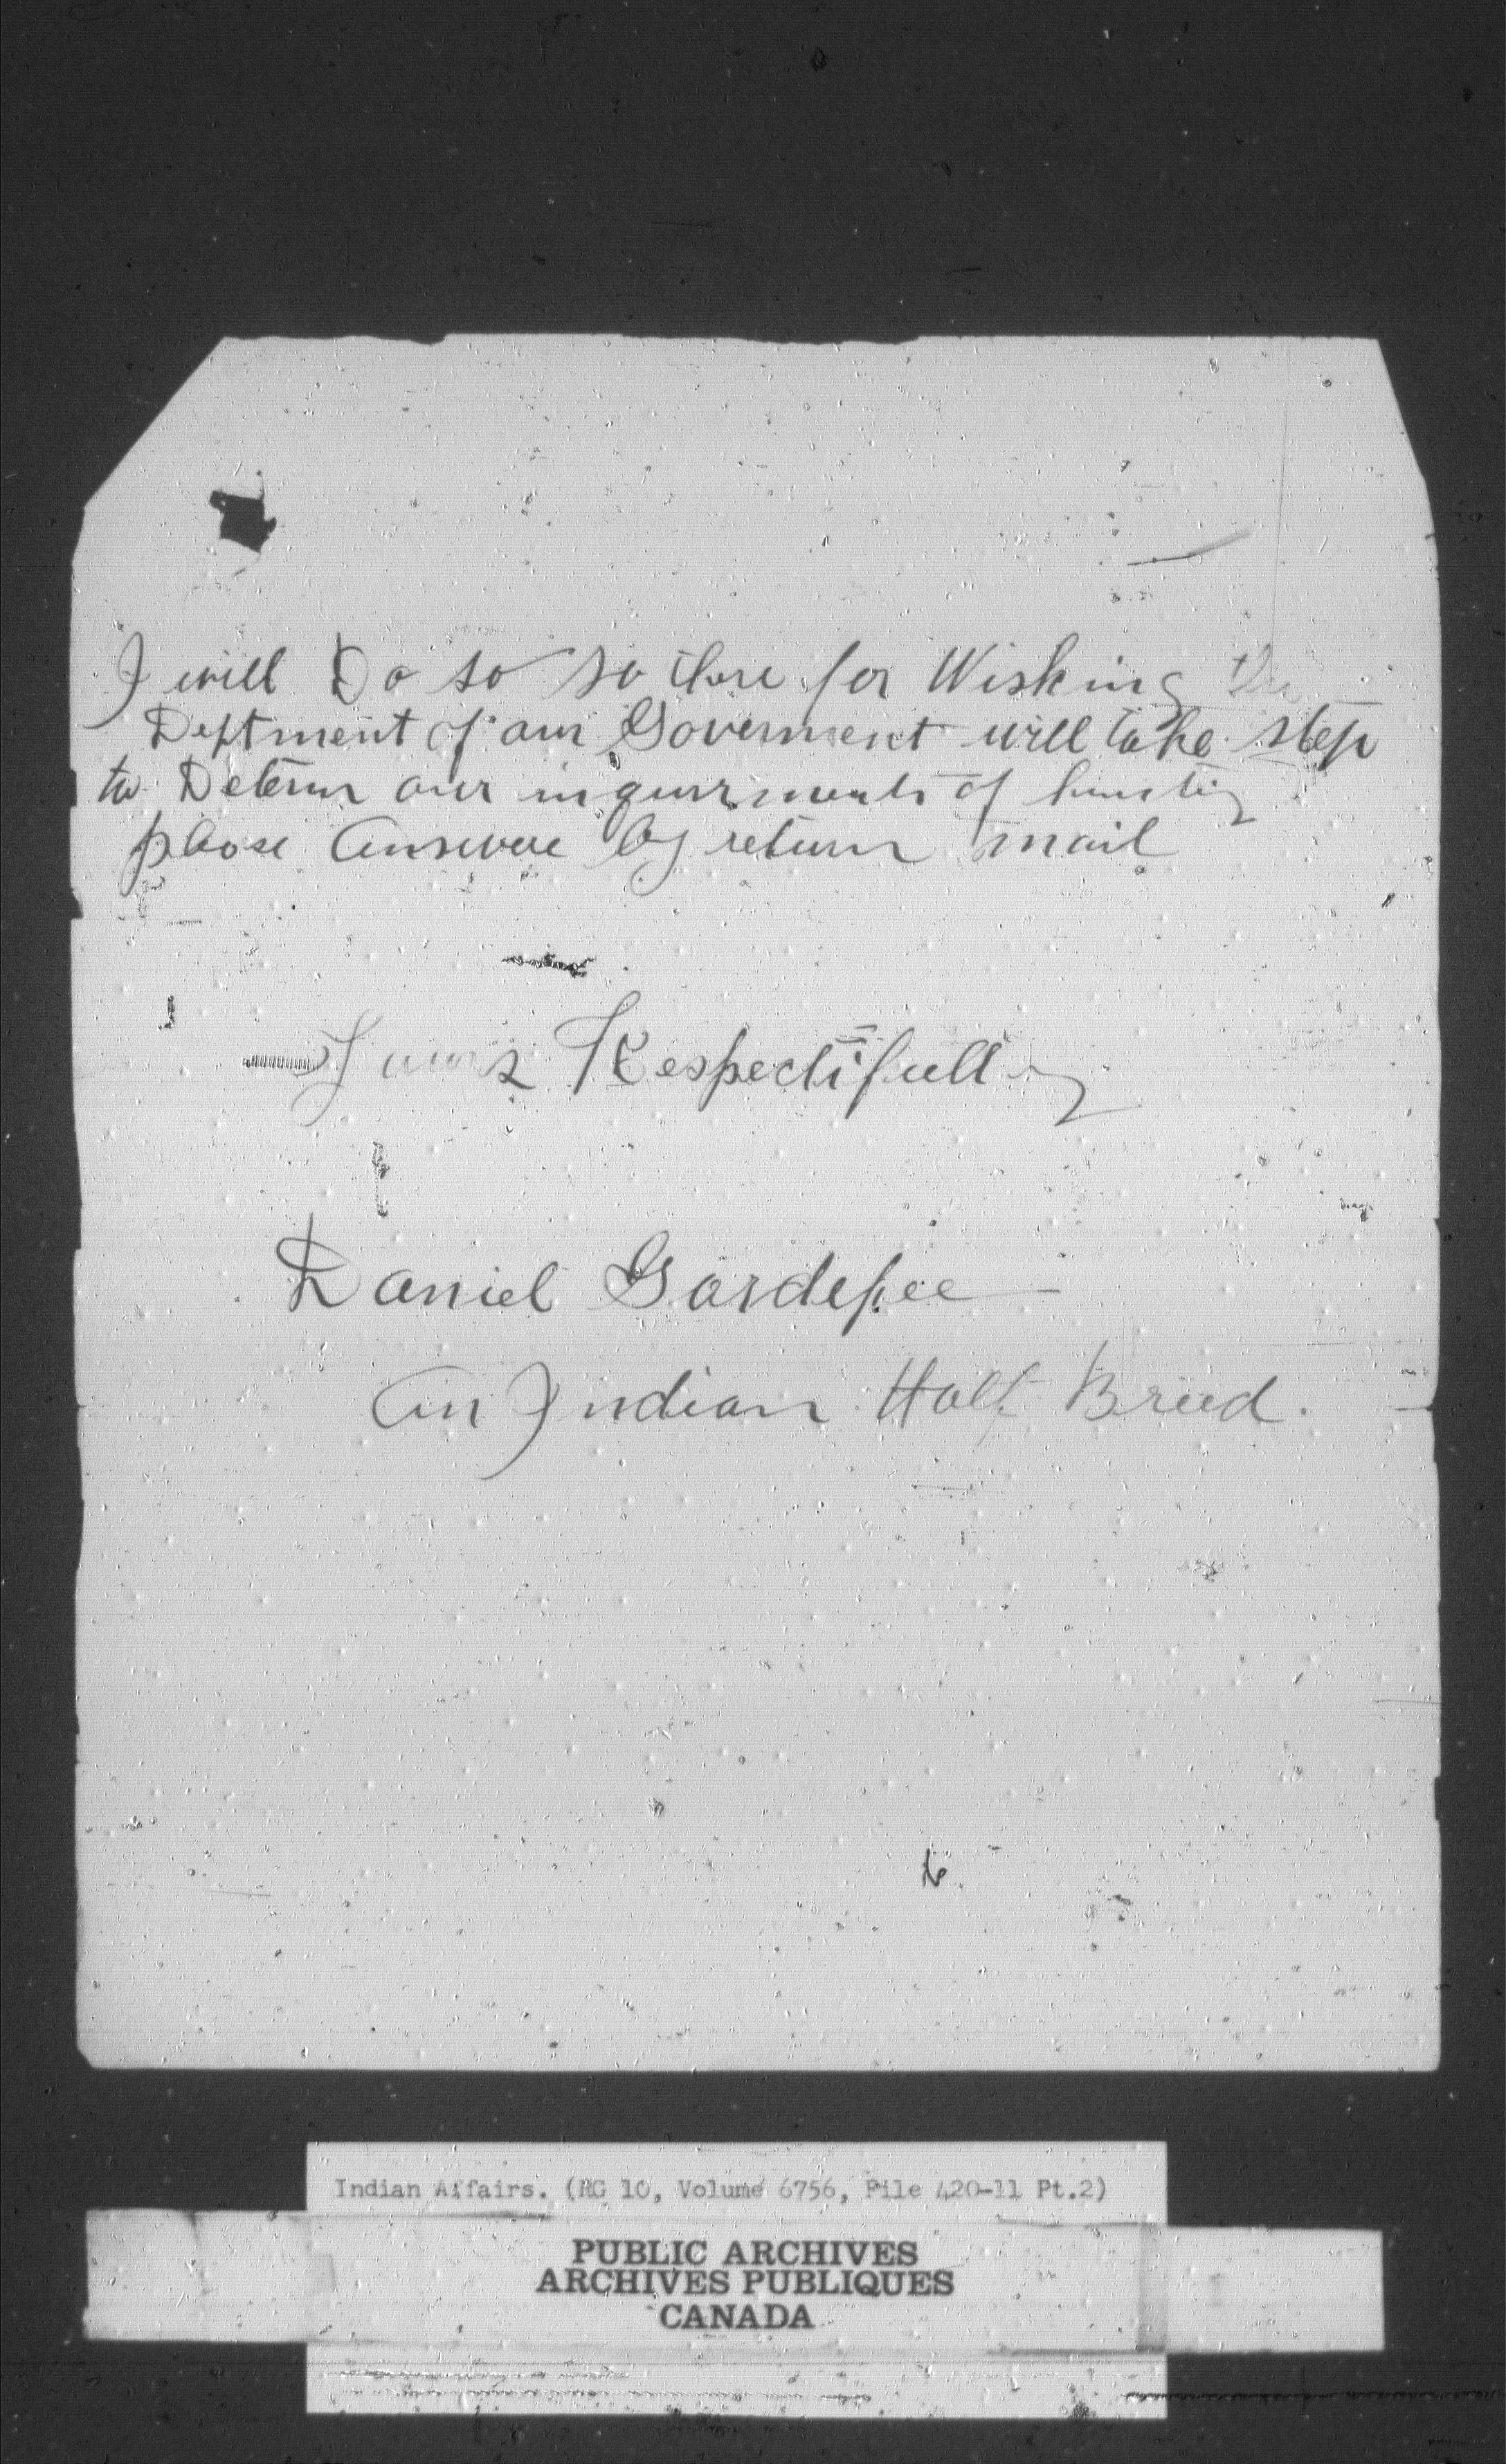 I will Do so so there for Wishing the
Deptment of our Goverment will take step
to Deterin our inquirments of hunting
please answere by return mail
Yours Respectifully
Daniel Gardepee
An Indian Half Breed.
Indian Affairs. (RG 10, Volume 6756, File 420-11 Pt.2)
PUBLIC ARCHIVES
ARCHIVES PUBLIQUES
CANADA